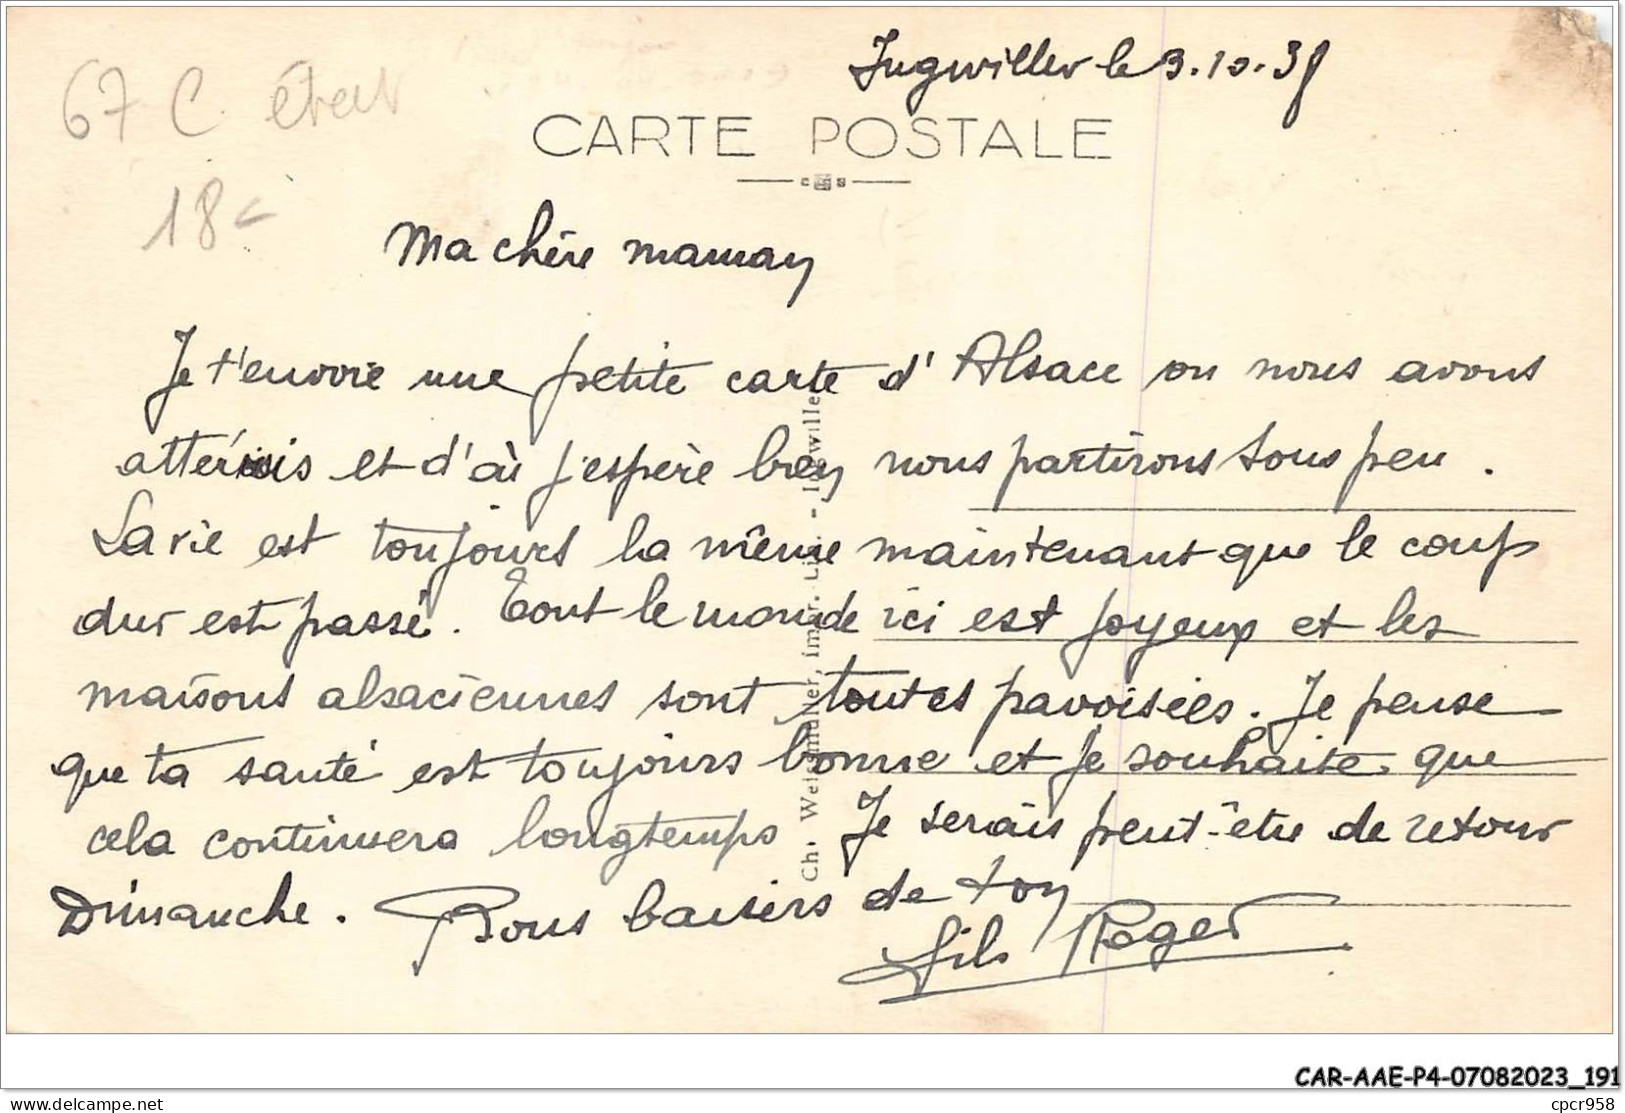 Ingwiller le 3.10.38
67 C. état
CARTE POSTALE
18-
Ma chère maman
Je t'envoie une petite carte d'Alsace ou nous avons
atterris et d'où j'espère bien nous partirons sous peu.
La vie est toujours la même maintenant que le coup
dur est passé. Tout le monde ici est joyeux et les
maisons alsaciennes sont toutes pavoisées. Je pense
que ta santé est toujours bonne et je souhaite que
cela continuera longtemps Je serais peut-être de retour
Dimanche. Bons baisers de ton
fils Roger
CAR-AAE-P4-07082023_191
delcampe.net
cpcr958